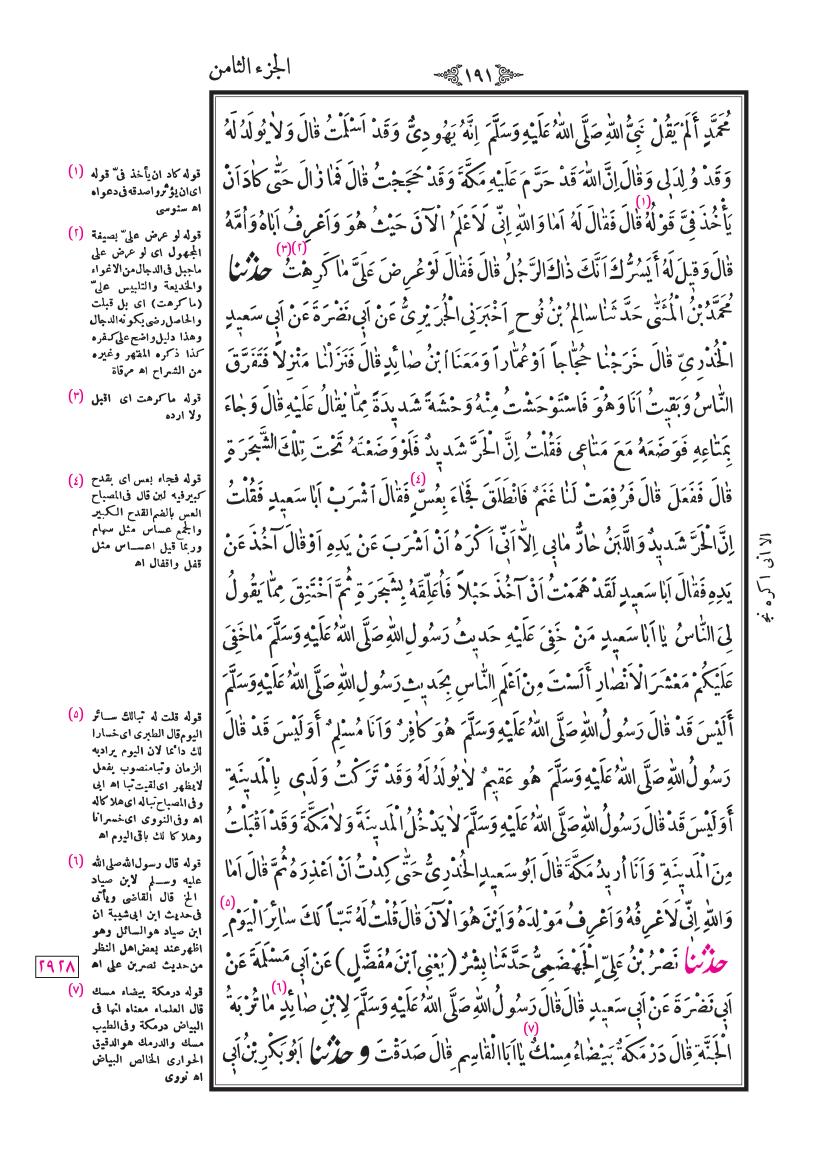 الجزء الثامن
١٩١
مُحَمَّدٍ أَلَمْ يَقُلْ نَبِيُّ اللهِ صَلَّى اللهُ عَلَيْهِ وَسَلَّمَ اِنَّهُ يَهُودِيٌّ وَقَدْ اَسْلَمْتُ قَالَ وَلَا يُولَدُ لَهُ
وَقَدْ وُلِدَ لِي وَقَالَ اِنَّ اللهَ قَدْ حَرَّمَ عَلَيْهِ مَكَّةَ وَقَدْ حَجَجْتُ قَالَ فَمَا زَالَ حَتّٰى كَادَ اَنْ
يَأْخُذَ فِيَّ قَوْلُهُ (١) قَالَ فَقَالَ لَهُ اَمَا وَاللهِ اِنِّي لَاَعْلَمُ الْآنَ حَيْثُ هُوَ وَاَعْرِفُ اَبَاهُ وَاُمَّهُ
قَالَ وَقِيلَ لَهُ أَيَسُرُّكَ اَنَّكَ ذَاكَ الرَّجُلُ قَالَ فَقَالَ لَوْ عُرِضَ عَلَيَّ (٢) مَا كَرِهْتُ (٣) حدثنا
مُحَمَّدُ بْنُ الْمُثَنّٰى حَدَّثَنَا سَالِمُ بْنُ نُوحٍ اَخْبَرَنِي الْجُرَيْرِيُّ عَنْ اَبِي نَضْرَةَ عَنْ اَبِي سَعِيدٍ
الْخُدْرِيِّ قَالَ خَرَجْنَا حُجَّاجاً اَوْ عُمَّاراً وَمَعَنَا ابْنُ صَائِدٍ قَالَ فَنَزَلْنَا مَنْزِلاً فَتَفَرَّقَ
النَّاسُ وَبَقِيتُ اَنَا وَهُوَ فَاسْتَوْحَشْتُ مِنْهُ وَحْشَةً شَدِيدَةً مِمَّا يُقَالُ عَلَيْهِ قَالَ وَجَاءَ
بِمَتَاعِهِ فَوَضَعَهُ مَعَ مَتَاعِي فَقُلْتُ اِنَّ الْحَرَّ شَدِيدٌ فَلَوْ وَضَعْتَهُ تَحْتَ تِلْكَ الشَّجَرَةِ
قَالَ فَفَعَلَ قَالَ فَرُفِعَتْ لَنَا غَنَمٌ فَانْطَلَقَ فَجَاءَ بِعُسٍّ (٤) فَقَالَ اشْرَبْ اَبَا سَعِيدٍ فَقُلْتُ
اِنَّ الْحَرَّ شَدِيدٌ وَاللَّبَنُ حَارٌّ مَا بِي اِلَّا اَنِّي اَكْرَهُ اَنْ اَشْرَبَ عَنْ يَدِهِ اَوْ قَالَ آخُذَ عَنْ
يَدِهِ فَقَالَ اَبَا سَعِيدٍ لَقَدْ هَمَمْتُ اَنْ آخُذَ حَبْلاً فَاُعَلِّقَهُ بِشَجَرَةٍ ثُمَّ اَخْتَنِقَ مِمَّا يَقُولُ
لِيَ النَّاسُ يَا اَبَا سَعِيدٍ مَنْ خَفِيَ عَلَيْهِ حَدِيثُ رَسُولِ اللهِ صَلَّى اللهُ عَلَيْهِ وَسَلَّمَ مَا خَفِيَ
عَلَيْكُمْ مَعْشَرَ الْاَنْصَارِ أَلَسْتَ مِنْ اَعْلَمِ النَّاسِ بِحَدِيثِ رَسُولِ اللهِ صَلَّى اللهُ عَلَيْهِ وَسَلَّمَ
أَلَيْسَ قَدْ قَالَ رَسُولُ اللهِ صَلَّى اللهُ عَلَيْهِ وَسَلَّمَ هُوَ كَافِرٌ وَاَنَا مُسْلِمٌ أَوَلَيْسَ قَدْ قَالَ
رَسُولُ اللهِ صَلَّى اللهُ عَلَيْهِ وَسَلَّمَ هُوَ عَقِيمٌ لَا يُولَدُ لَهُ وَقَدْ تَرَكْتُ وَلَدِي بِالْمَدِينَةِ
أَوَلَيْسَ قَدْ قَالَ رَسُولُ اللهِ صَلَّى اللهُ عَلَيْهِ وَسَلَّمَ لَا يَدْخُلُ الْمَدِينَةَ وَلَا مَكَّةَ وَقَدْ اَقْبَلْتُ
مِنَ الْمَدِينَةِ وَاَنَا اُرِيدُ مَكَّةَ قَالَ اَبُو سَعِيدٍ الْخُدْرِيُّ حَتّٰى كِدْتُ اَنْ اَعْذِرَهُ ثُمَّ قَالَ اَمَا
وَاللهِ اِنِّي لَاَعْرِفُهُ وَاَعْرِفُ مَوْلِدَهُ وَاَيْنَ هُوَ الْآنَ قَالَ قُلْتُ لَهُ تَبّاً لَكَ سَائِرَ الْيَوْمِ (٥)
حدثنا نَصْرُ بْنُ عَلِيٍّ الْجَهْضَمِيُّ حَدَّثَنَا بِشْرٌ (يَعْنِي ابْنَ مُفَضَّلٍ) عَنْ اَبِي مَسْلَمَةَ عَنْ
اَبِي نَضْرَةَ عَنْ اَبِي سَعِيدٍ قَالَ قَالَ رَسُولُ اللهِ صَلَّى اللهُ عَلَيْهِ وَسَلَّمَ لِابْنِ صَائِدٍ (٦) مَا تُرْبَةُ
الْجَنَّةِ قَالَ دَرْمَكَةٌ بَيْضَاءُ مِسْكٌ (٧) يَا اَبَا الْقَاسِمِ قَالَ صَدَقْتَ وحدثنا اَبُو بَكْرِ بْنُ اَبِي
الا انى اكره نخ
(١) قوله كاد ان يأخذ فىّ قوله
اى ان يؤثر واصدقه فى دعواه
اه سنوسى
(٢) قوله لو عرض علىّ بصيغة
المجهول اى لو عرض على
ماجبل فى الدجال من الاغواء
والخديعة والتلبيس علىّ
(ماكرهت) اى بل قبلت
والحاصل رضى بكونه الدجال
وهذا دليل واضح على كفره
كذا ذكره المظهر وغيره
من الشراح اه مرقاة
(٣) قوله ماكرهت اى اقبل
ولا ارده
(٤) قوله فجاء بعس اى بقدح
كبير فيه لبن قال فى المصباح
العس بالضم القدح الكبير
والجمع عساس مثل سهام
وربما قيل اعساس مثل
قفل واقفال اه
(٥) قوله قلت له تبالك سائر
اليوم قال الطيبى اى خسارا
لك دائما لان اليوم يراد به
الزمان وتبا منصوب بفعل
لايظهر اى لقيت تبا اه ابى
وفى المصباح تباله اى هلاكاله
اه وفى النووى اى خسرانا
وهلاكا لك باقى اليوم اه
(٦) قوله قال رسول الله صلى الله
عليه وسلم لابن صياد
الخ قال القاضى ويأتى
فى حديث ابن ابى شيبة ان
ابن صياد هو السائل وهو
اظهر عند بعض اهل النظر
من حديث نصر بن على اه
٢٩٢٨
(٧) قوله درمكة بيضاء مسك
قال العلماء معناه انها فى
البياض درمكة وفى الطيب
مسك والدرمك هو الدقيق
الحوارى الخالص البياض
اه نووى